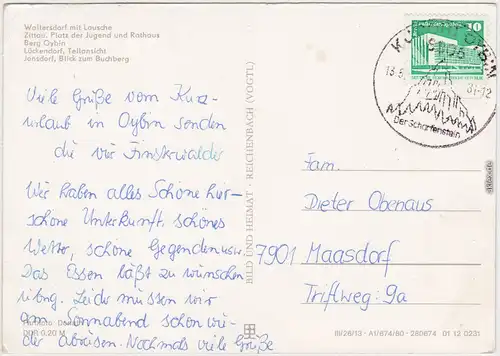 Waltersdorf mit Lausche
Zittau, Platz der Jugend und Rathaus
Berg Oybin
Lückendorf, Teilansicht
Jonsdorf, Blick zum Buchberg
Viele Grüße vom Kurz-
urlaub in Oybin senden
die vier Finsterwalder
Wir haben alles Schöne hier-
schöne Unterkunft, schönes
Wetter, schöne Gegenden usw.
Das Essen läßt zu wünschen
übrig. Leider müssen wir
am Sonnabend schon wie-
der abreisen. Nochmals viele Grüße
DDR 0,20 M
BILD UND HEIMAT · REICHENBACH (VOGTL)
10
8806
13.5.
-12
Der Scharfenstein
Fam.
Dieter Obenaus
7901 Maasdorf
Triftweg 9a
III/26/13 · A1/674/80 · 280674 01 12 0231